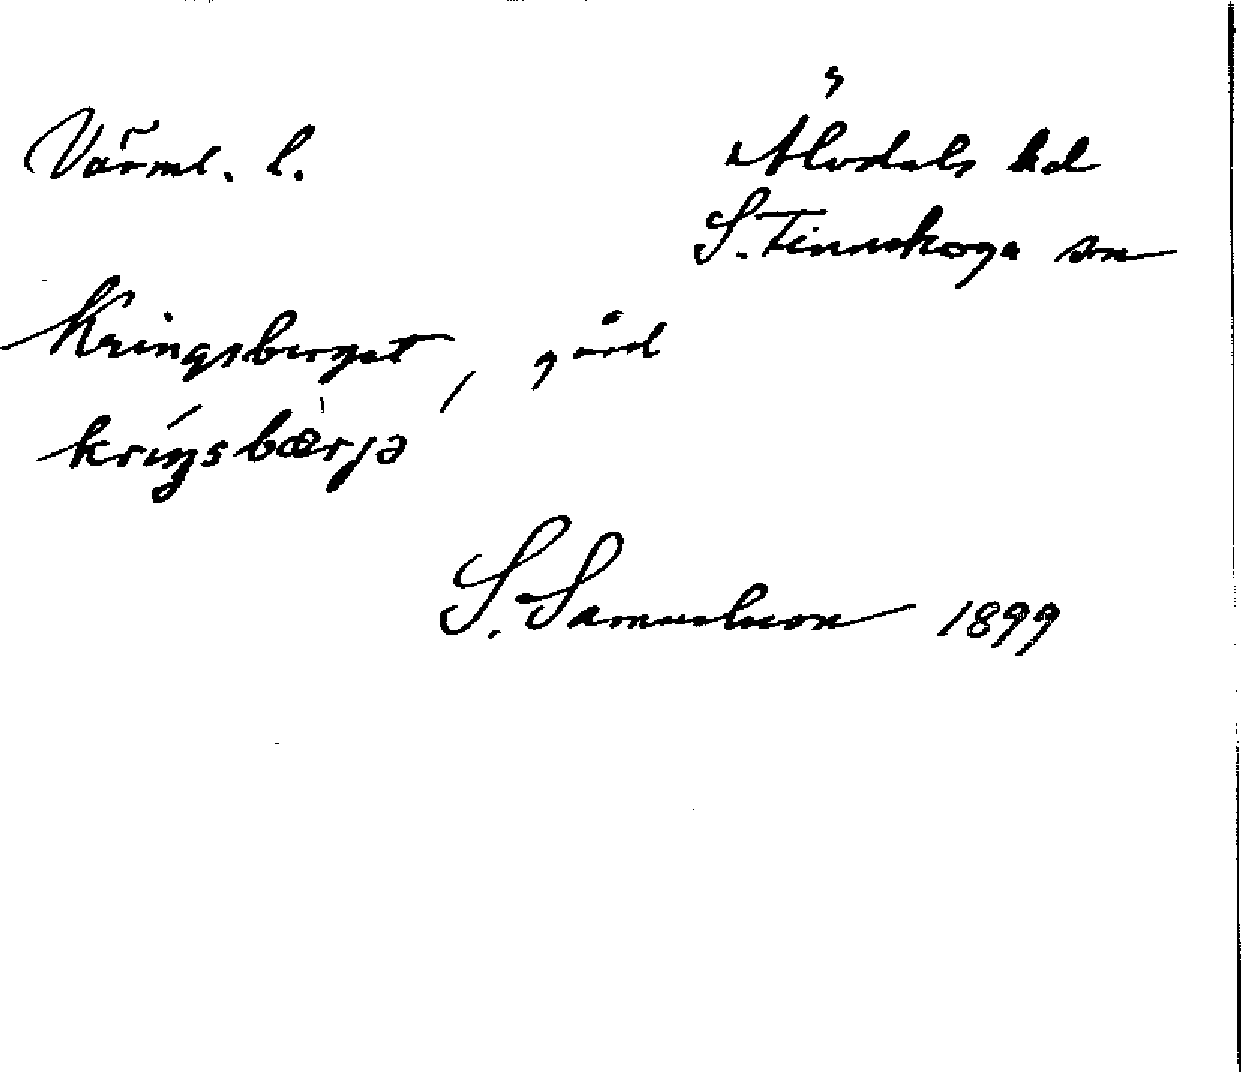 Värml. l.
Älvdals hd
S. Finnskoga sn
Kringsberget, gård
kríŋsbæ̀rjə
S. Samuelsson 1899